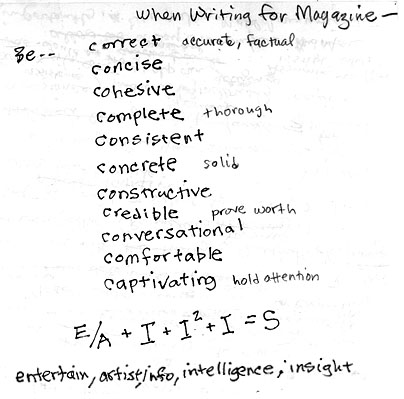 When Writing for Magazine —
Be-- correct accurate, factual
concise
cohesive
complete thorough
consistent
concrete solid
constructive
credible prove worth
conversational
comfortable
captivating hold attention
E/A + I + I² + I = S
entertain, artist/info, intelligence, insight